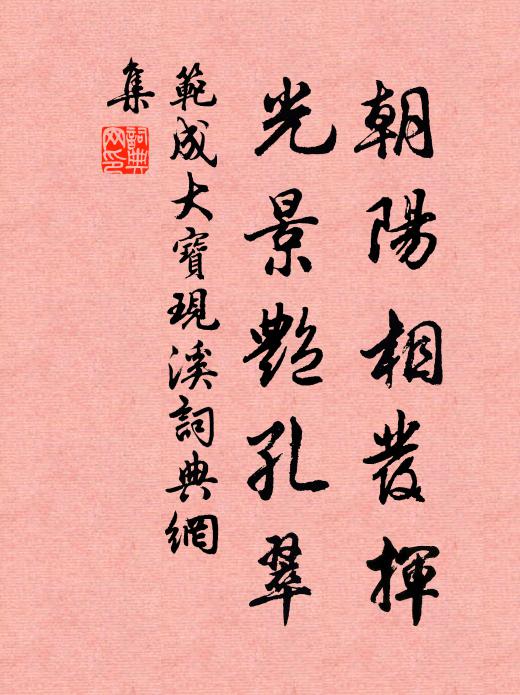 朝陽相發揮
光景艷孔翠
範成大寶現溪詞典網
集
詞典
网印